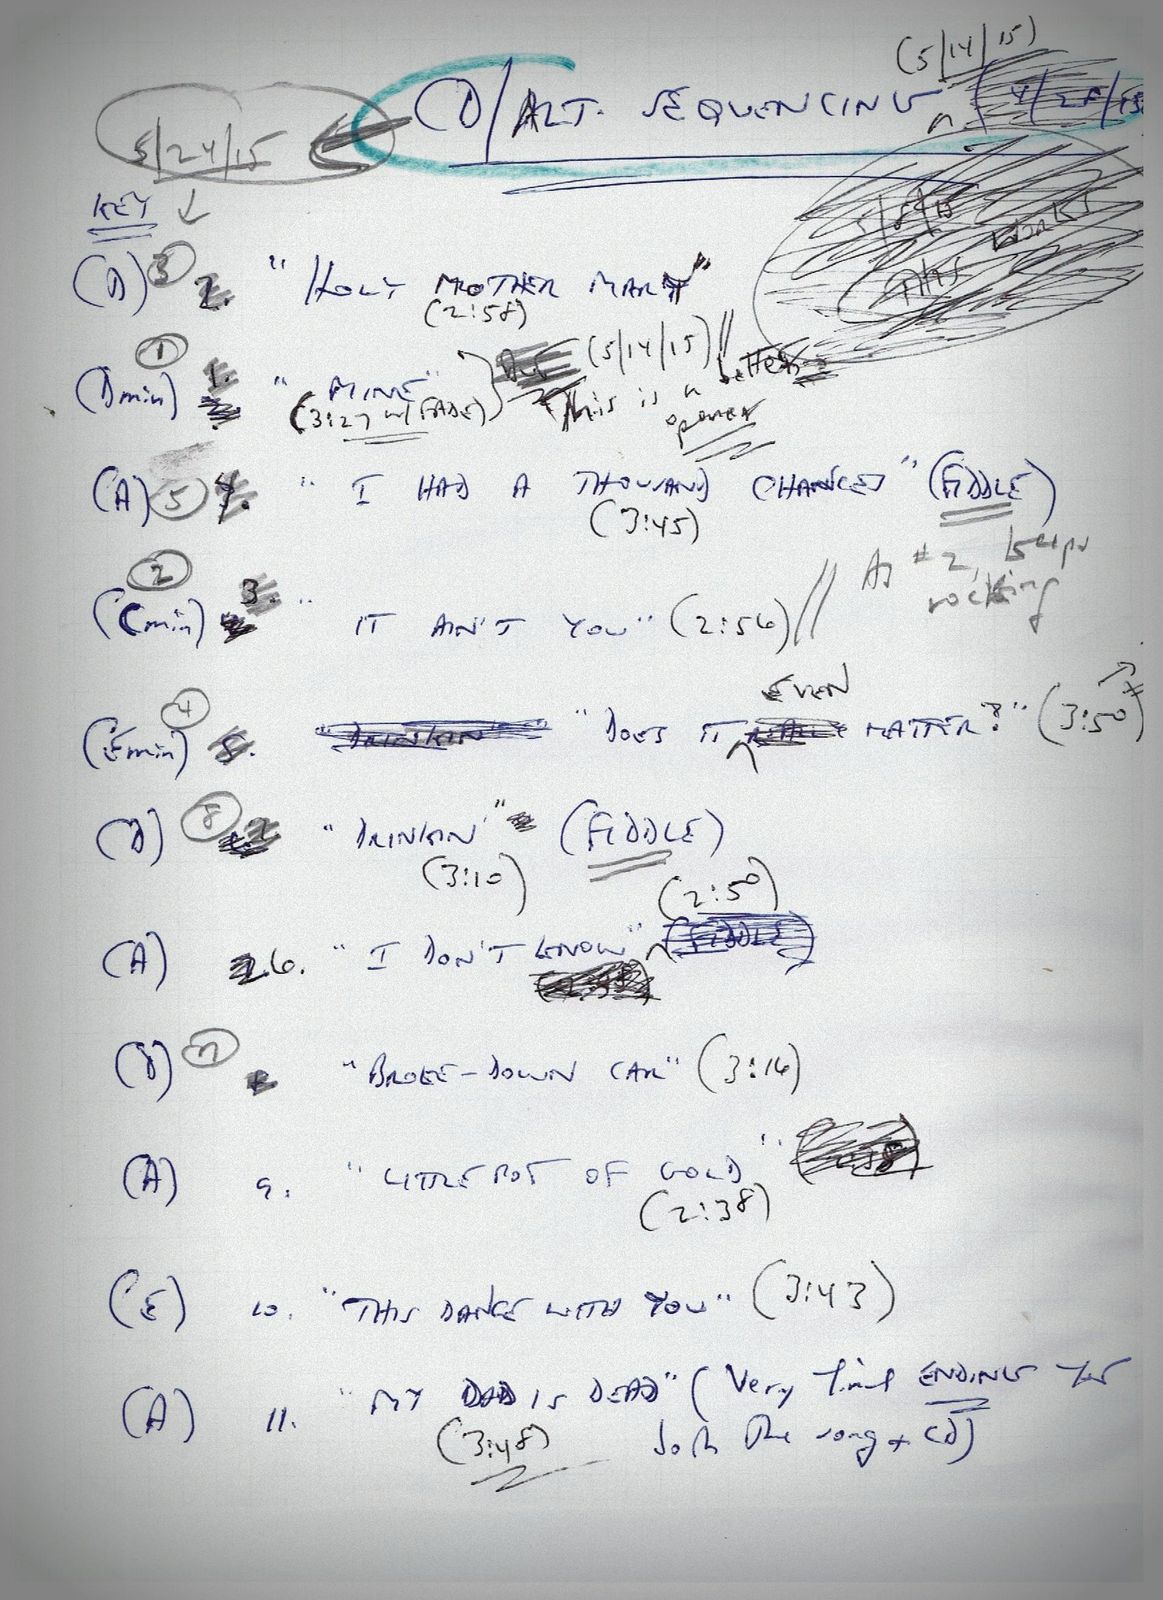 (5/14/15)
D/ALT. SEQUENCING (4/28/15
5/24/15
KEY ↓
5/8/15
This works
(D) 3 2. "HOLY MOTHER MARY"
(2:58)
(Dmin) 1 1. "MINE" (5/14/15)//
(3:27 w/FADE) This is a better
opener
(A) 5 4. "I HAD A THOUSAND CHANCES" (FIDDLE)
(3:45)
(Cmin) 2 3. "IT AIN'T YOU" (2:56) // As #2, keeps
rocking
EVEN
(Emin) 4 5. "DRINKIN'" "DOES IT REALLY MATTER?" (3:50)
(D) 8 7 "DRINKIN'" (FIDDLE)
(3:10)
(2:50)
(A) 6. "I DON'T KNOW" (FIDDLE)
(D) 7 "BROKE-DOWN CAR" (3:16)
(A) 9. "LITTLE POT OF GOLD"
(2:38)
(E) 10. "THIS DANCE WITH YOU" (3:43)
(A) 11. "MY DAD IS DEAD" (Very final ENDING for
(3:48) both the song + CD)